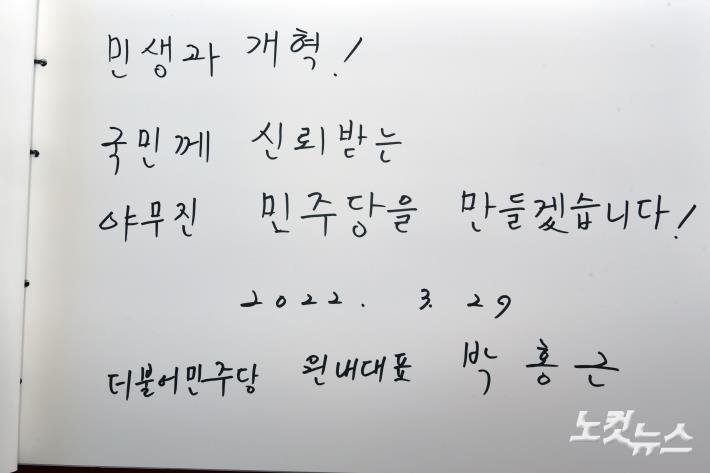 민생과 개혁!
국민께 신뢰받는
야무진 민주당을 만들겠습니다!
2022. 3. 29
더불어민주당 원내대표 박홍근
노컷뉴스